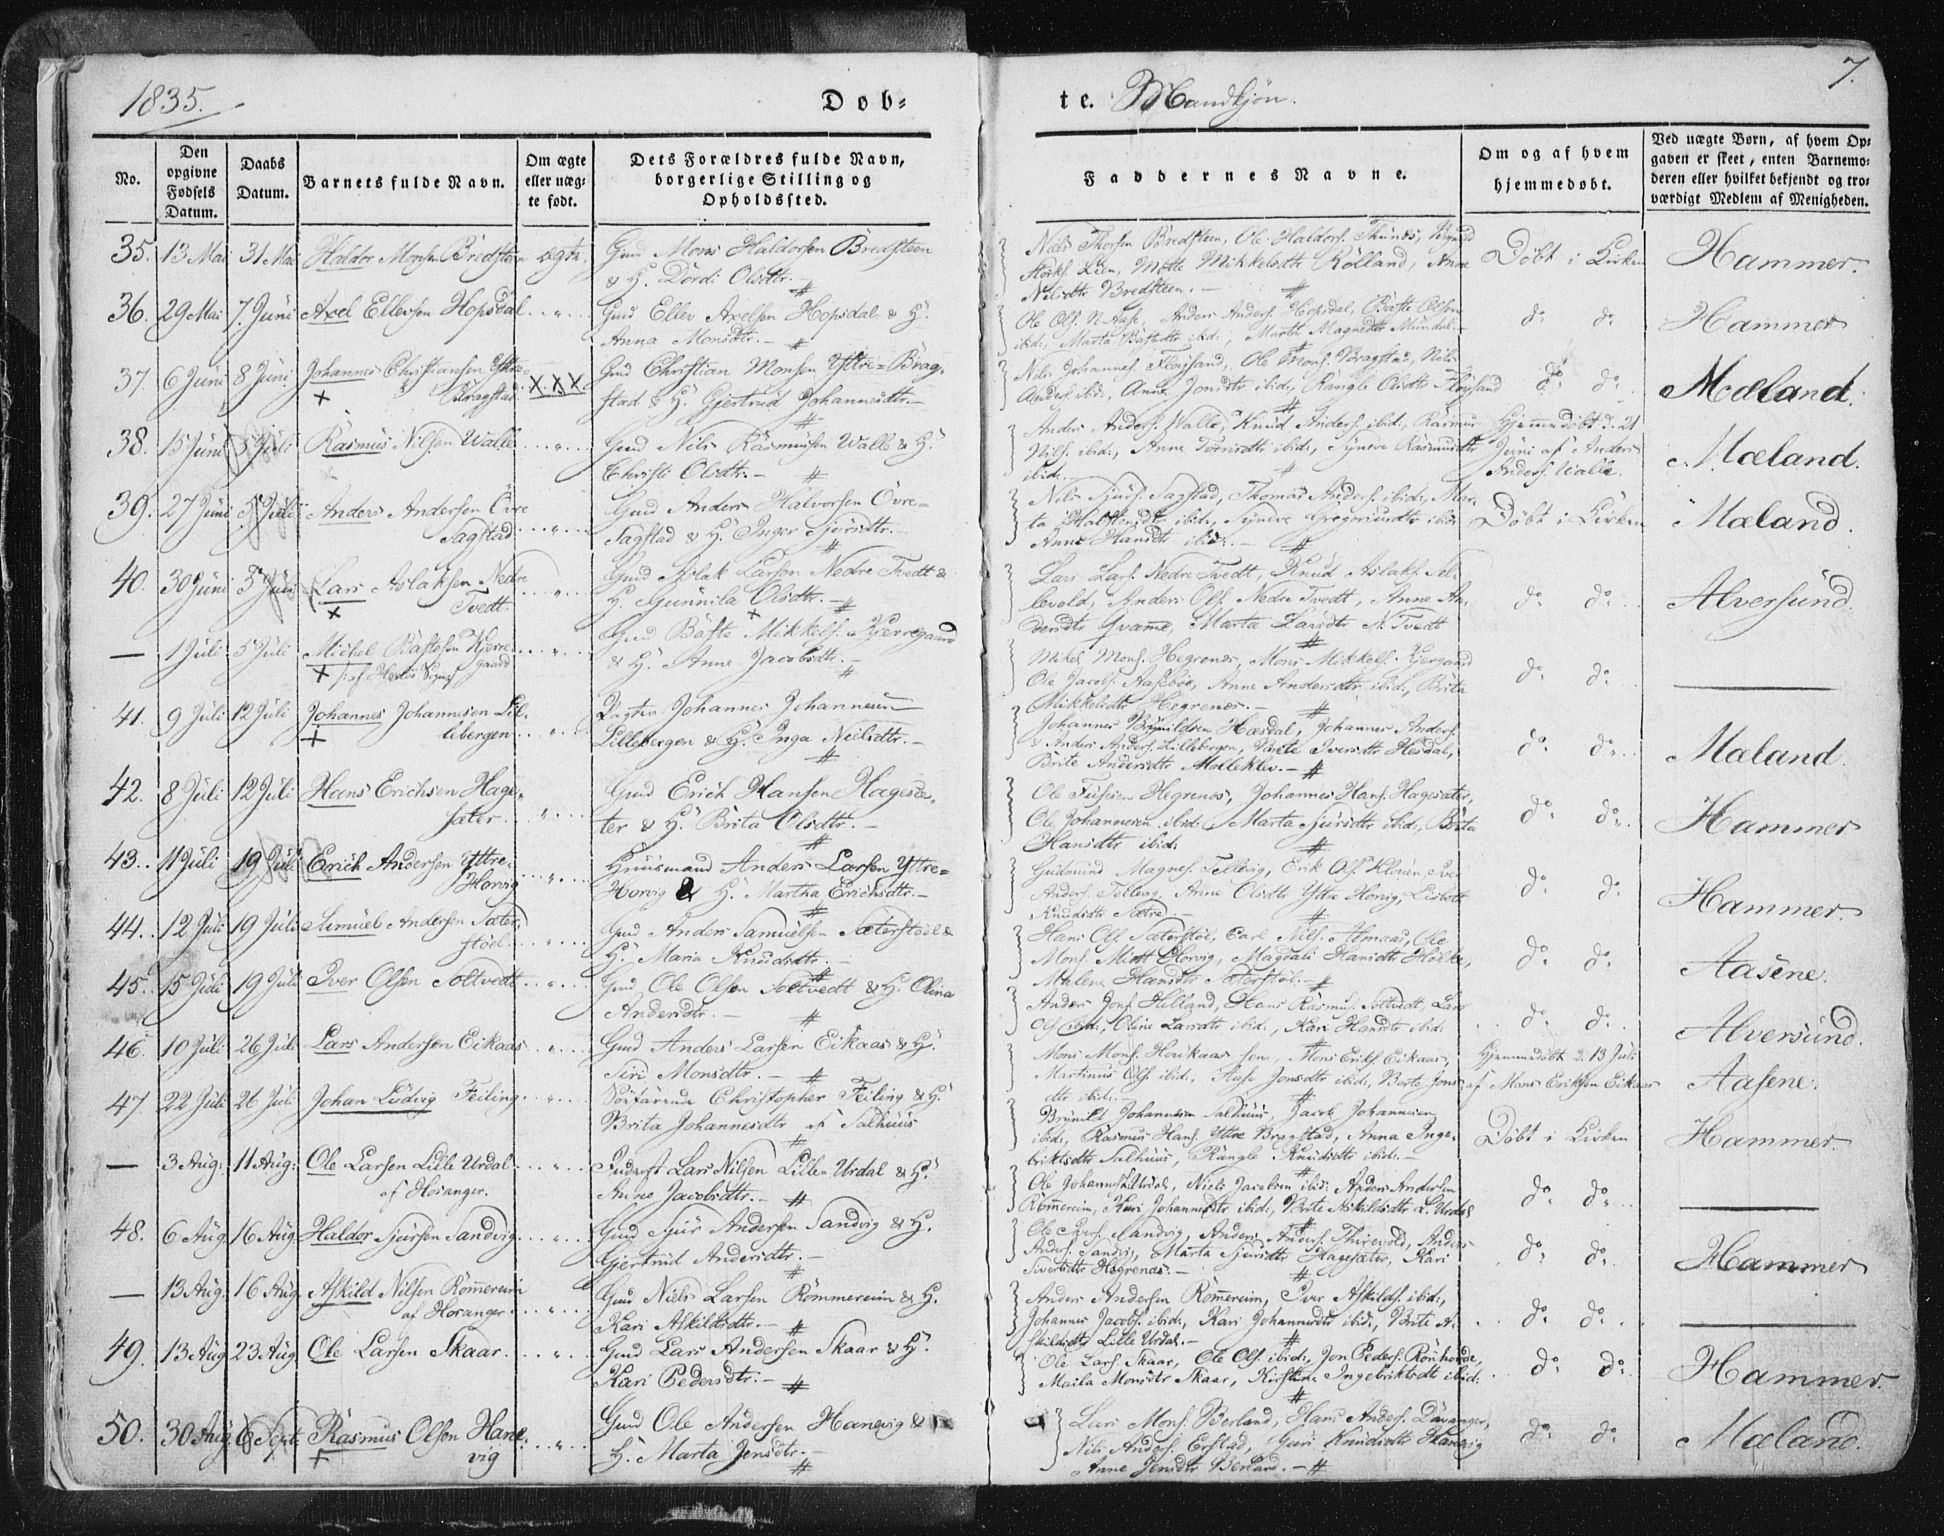 1835.
Døb-
te. Mandkjön.
7.
No.
Den opgivne Fødsels Datum.
Daabs Datum.
Barnets fulde Navn.
Om ægte eller uægte født.
Dets Forældres fulde Navn, borgerlige Stilling og Opholdssted.
Faddernes Navne.
Om og af hvem hjemmedøbt.
Ved uægte Børn, af hvem Opgaven er skeet, enten Barnemoderen eller hvilket bekjendt og troværdigt Medlem af Menigheden.
35. 13 Mai 31 Mai Haldor Monsen Bredsteen ægte. Gmd Mons Haldorsen Bredsteen
& H. Dördi Olsdtr. -
Niels Thorsen Bredsteen, Ole Haldors. Thunes,
Lien, Mette Mikkelsdtr Rölland, Anne
Nilsdtr Bredsteen. -
Döbt i Kirken
Hammer.
36. 29 Mai 7. Juni Axel Ellevsen Hopsdal Gmd Ellev Axelsen Hopsdal & H.
Anna Monsdtr. -
Ole Ols. N. Aase, Anders Anders. Hopsdal, Baste Olsen
ibid., Marta Bastesdtr ibid., Martha Magnesdtr Mundal -
do do
Hammer
37. 6 Juni 8 Juni Johannes Christiansen Yttre-
Bragstad. XXX Gmd Christian Monsen Yttre-Brag-
stad & H. Gjertrud Johannesdtr. -
Nils Johannes. Floysand, Ole Mons. Bragstad, Nils
Anders. ibid., Anne Jonsdtr ibid., Rangle Olsdtr Floysand
do do
Mæland.
38. 15 Juni 5 Juli Rasmus Nilsen Walle Gmd Nils Rasmusen Walle & H.
Christi Olsdtr. -
Anders Anders. Walle, Knud Anders. ibid., Rasmus
Nils. ibid., Anne ibid., Syneve Rasmusdtr
ibid.
Hjemmedöbt d. 21
Juni af Anders
Anders. Walle.
Mæland.
39. 27 Juni 5 Juli Anders Andersen Övre
Sagstad Gmd Anders Halvorsen Övre-
Sagstad & H. Inger Sjursdtr. -
Nils Sjurs. Sagstad, Thomas Anders. ibid., Mar-
ta Halstensdtr ibid., Syneve Gregoriusdtr ibid.
Anne Hansdtr ibid. -
Döbt i Kirken
Mæland.
40. 30 Juni 5 Juli Lars Aslaksen Nedre
Tvedt. Gmd Aslak Larsen Nedre Tvedt &
H. Gunnila Olsdtr. -
Lars Lars. Nedre Tvedt, Knud Aslaks.
Anders Ols. Nedre Tvedt, Anne An-
dersdtr Qvamme, Marta Larsdtr N. Tvedt
do do
Alversund.
— 1 Juli 5 Juli Michel Bastesen Kjerre-
gaard
Gmd Baste Mikkels. Kjerregaard
& H. Anne Jacobsdtr. -
Mikel Mons. Hegrenes, Mons Mikkels. Kjergaard
Ole Jacobs. Aasebøe, Anne Andersdtr ibid., Brita
Mikkelsdtr Hegrenes. -
do do
41. 9 Juli 12 Juli Johannes Johannesen Lil-
lebergen Johannes Johannesen
Lillebergen & H. Inga Neilsdtr. -
Johannes Brynildsen Hæsdal, Johannes Anders.
& Anders Anders. Lillebergen, Brete Iversdtr Hesdal,
Brite Andersdtr Molleklev. -
do do
Mæland.
42. 8 Juli 12 Juli Hans Erichsen Hage-
sæter. Gmd Erich Hansen Hagesæ-
ter & H. Brita Olsdtr. -
Ole Hegrenes, Johannes Hans. Hagesæter,
Ole Johannesen ibid., Marta Sjursdtr ibid., Brita
Hansdtr ibid.
do do
Hammer
43. 11 Juli 19 Juli Erich Andersen Yttre-
Horvig Huusmand Anders Larsen Yttre-
Horvig & H. Martha Erichsdtr. -
Gudmund Magnes. Tellevig, Erik Ols. Kloven, Iver
Anders. Tellevig, Anne Olsdtr Yttre Horvig, Lisbeth
Knudsdtr Sætre -
do do
Hammer.
44. 12 Juli 19 Juli Samuel Andersen Sæter-
stöel. Gmd Anders Samuelsen Sæterstöel &
H. Maria Knudsdtr. -
Hans Ols. Sæterstöl, Carl Nils. Almaas, Ole
Mons. Midt Horvig, Magdali Hansdtr
Malene Hansdtr Sæterstöl. -
do do
Aasene.
45. 15 Juli 19 Juli Iver Olsen Soltvedt Gmd Ole Olsen Soltvedt & H. Olina
Andersdtr. -
Anders Jons. Hilland, Hans Rasmus. Soltvedt, Lars
Ols. ibid., Oline Larsdtr ibid., Kari Hansdtr ibid.
do do
Alversund.
46. 10 Juli 26 Juli Lars Andersen Eikaas Gmd Anders Larsen Eikaas & H.
Siri Monsdtr. -
Mons Mons. sen., Mons Eriks. Eikaas,
Martinus Ols. ibid., Aase Jonsdtr ibid., Berte Jons-
dtr ibid. -
Hjemmedöbt d. 13 Juli
af Mons Eriksen Eikaas
Aasene.
47. 22 Juli 26 Juli Johan Ludvig Feiling Söefarende Christopher Feiling & H.
Brita Johannesdtr af Salhuus
Brynild Johannesen Salhuus, Jacob Johannesen
ibid., Rasmus Hans. Yttre Bragstad, Anna Inge-
briktsdtr Salhuus, Rangle Knudsdtr ibid. -
Döbt i Kirken
Hammer
— 3 Aug. 11 Aug. Ole Larsen Lille Urdal
af Hosanger. Lars Nilsen Lille-Urdal & H.
Anne Jacobsdtr. -
Ole Johannes. Urdal, Niels Jacobsen ibid., Anders Andersen
Römmereim, Kari Johannesdtr ibid., Brite Askildsdtr L. Urdal
do do
48. 6 Aug. 16 Aug. Haldor Sjursen Sandvig Gmd Sjur Andersen Sandvig & H.
Gjertrud Andersdtr. -
Ole Ivers. Sandvig, Anders Anders. Thirevold, Anders
Anders. Sandvig, Marta Sjursdtr Hagesæter, Kari
Siversdtr Hegrenes. -
do do
Hammer
— 13 Aug. 16 Aug. Askild Nilsen Römmereim
af Hosanger Gmd Niels Larsen Römmereim & H.
Kari Askildsdtr. -
Anders Andersen Römmereim, Iver Askilds. ibid.,
Johannes Jacobs. ibid., Kari Johannesdtr ibid., Brite A-
skildsdtr Lille Urdal. -
do do
49. 13 Aug 23 Aug. Ole Larsen Skaar. Gmd Lars Andersen Skaar & H.
Kari Pedersdtr. -
Ole Lars. Skaar, Ole Ols. ibid., Jon Peders. Rönhovde,
Maila Monsdtr Skaar, Kirstine Ingebriktsdtr ibid.
do do
Hammer.
50. 30 Aug 6 Septr. Rasmus Olsen Hane-
vig Gmd Ole Andersen Hanevig &
H. Marta Jensdtr. -
Lars Mons. Berland, Hans Anders. Davanger,
Nils Anders. Erstad, Guri Knudsdtr Hanevig
Anne Jensdtr Berland. -
do do
Mæland.